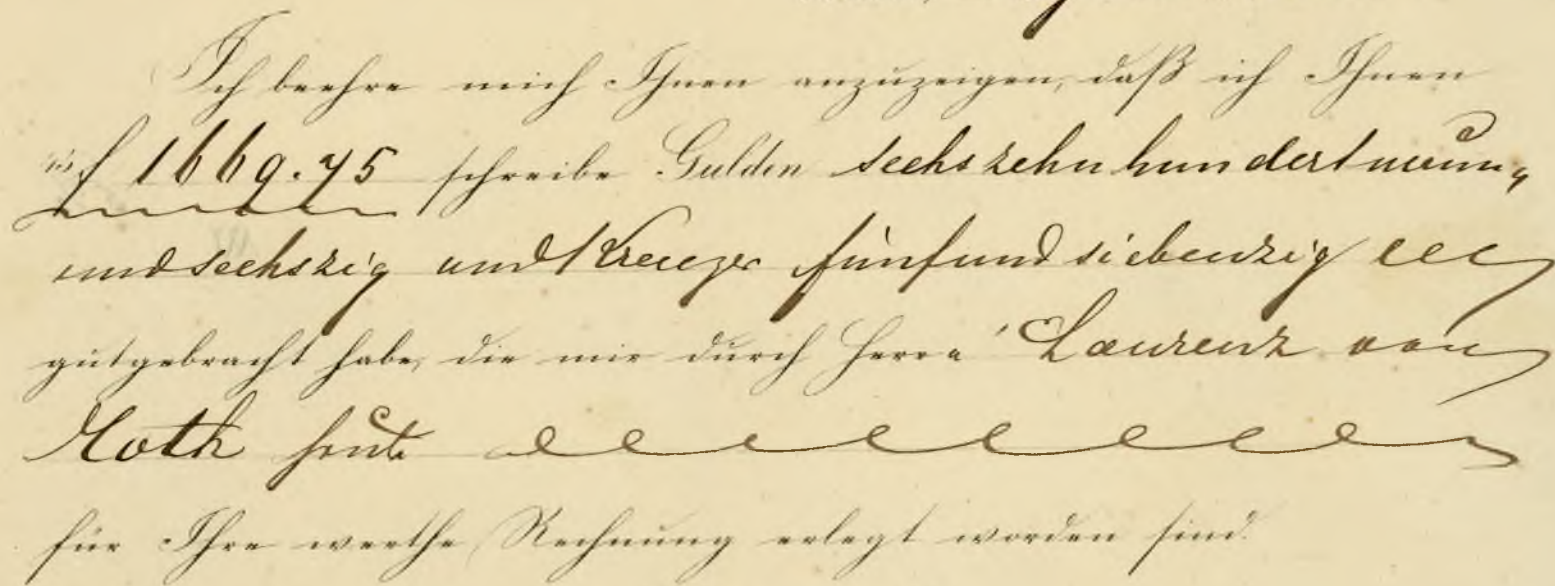 Ich beehre mich Ihnen anzuzeigen, daß ich Ihnen
f 1669.75 schreibe Gulden sechszehnhundertneun
und sechszig und Kreuzer fünfundsiebenzig
gutgebracht habe, die mir durch Herrn Laurenz von
Moth heute
für Ihre werthe Rechnung erlegt worden sind.